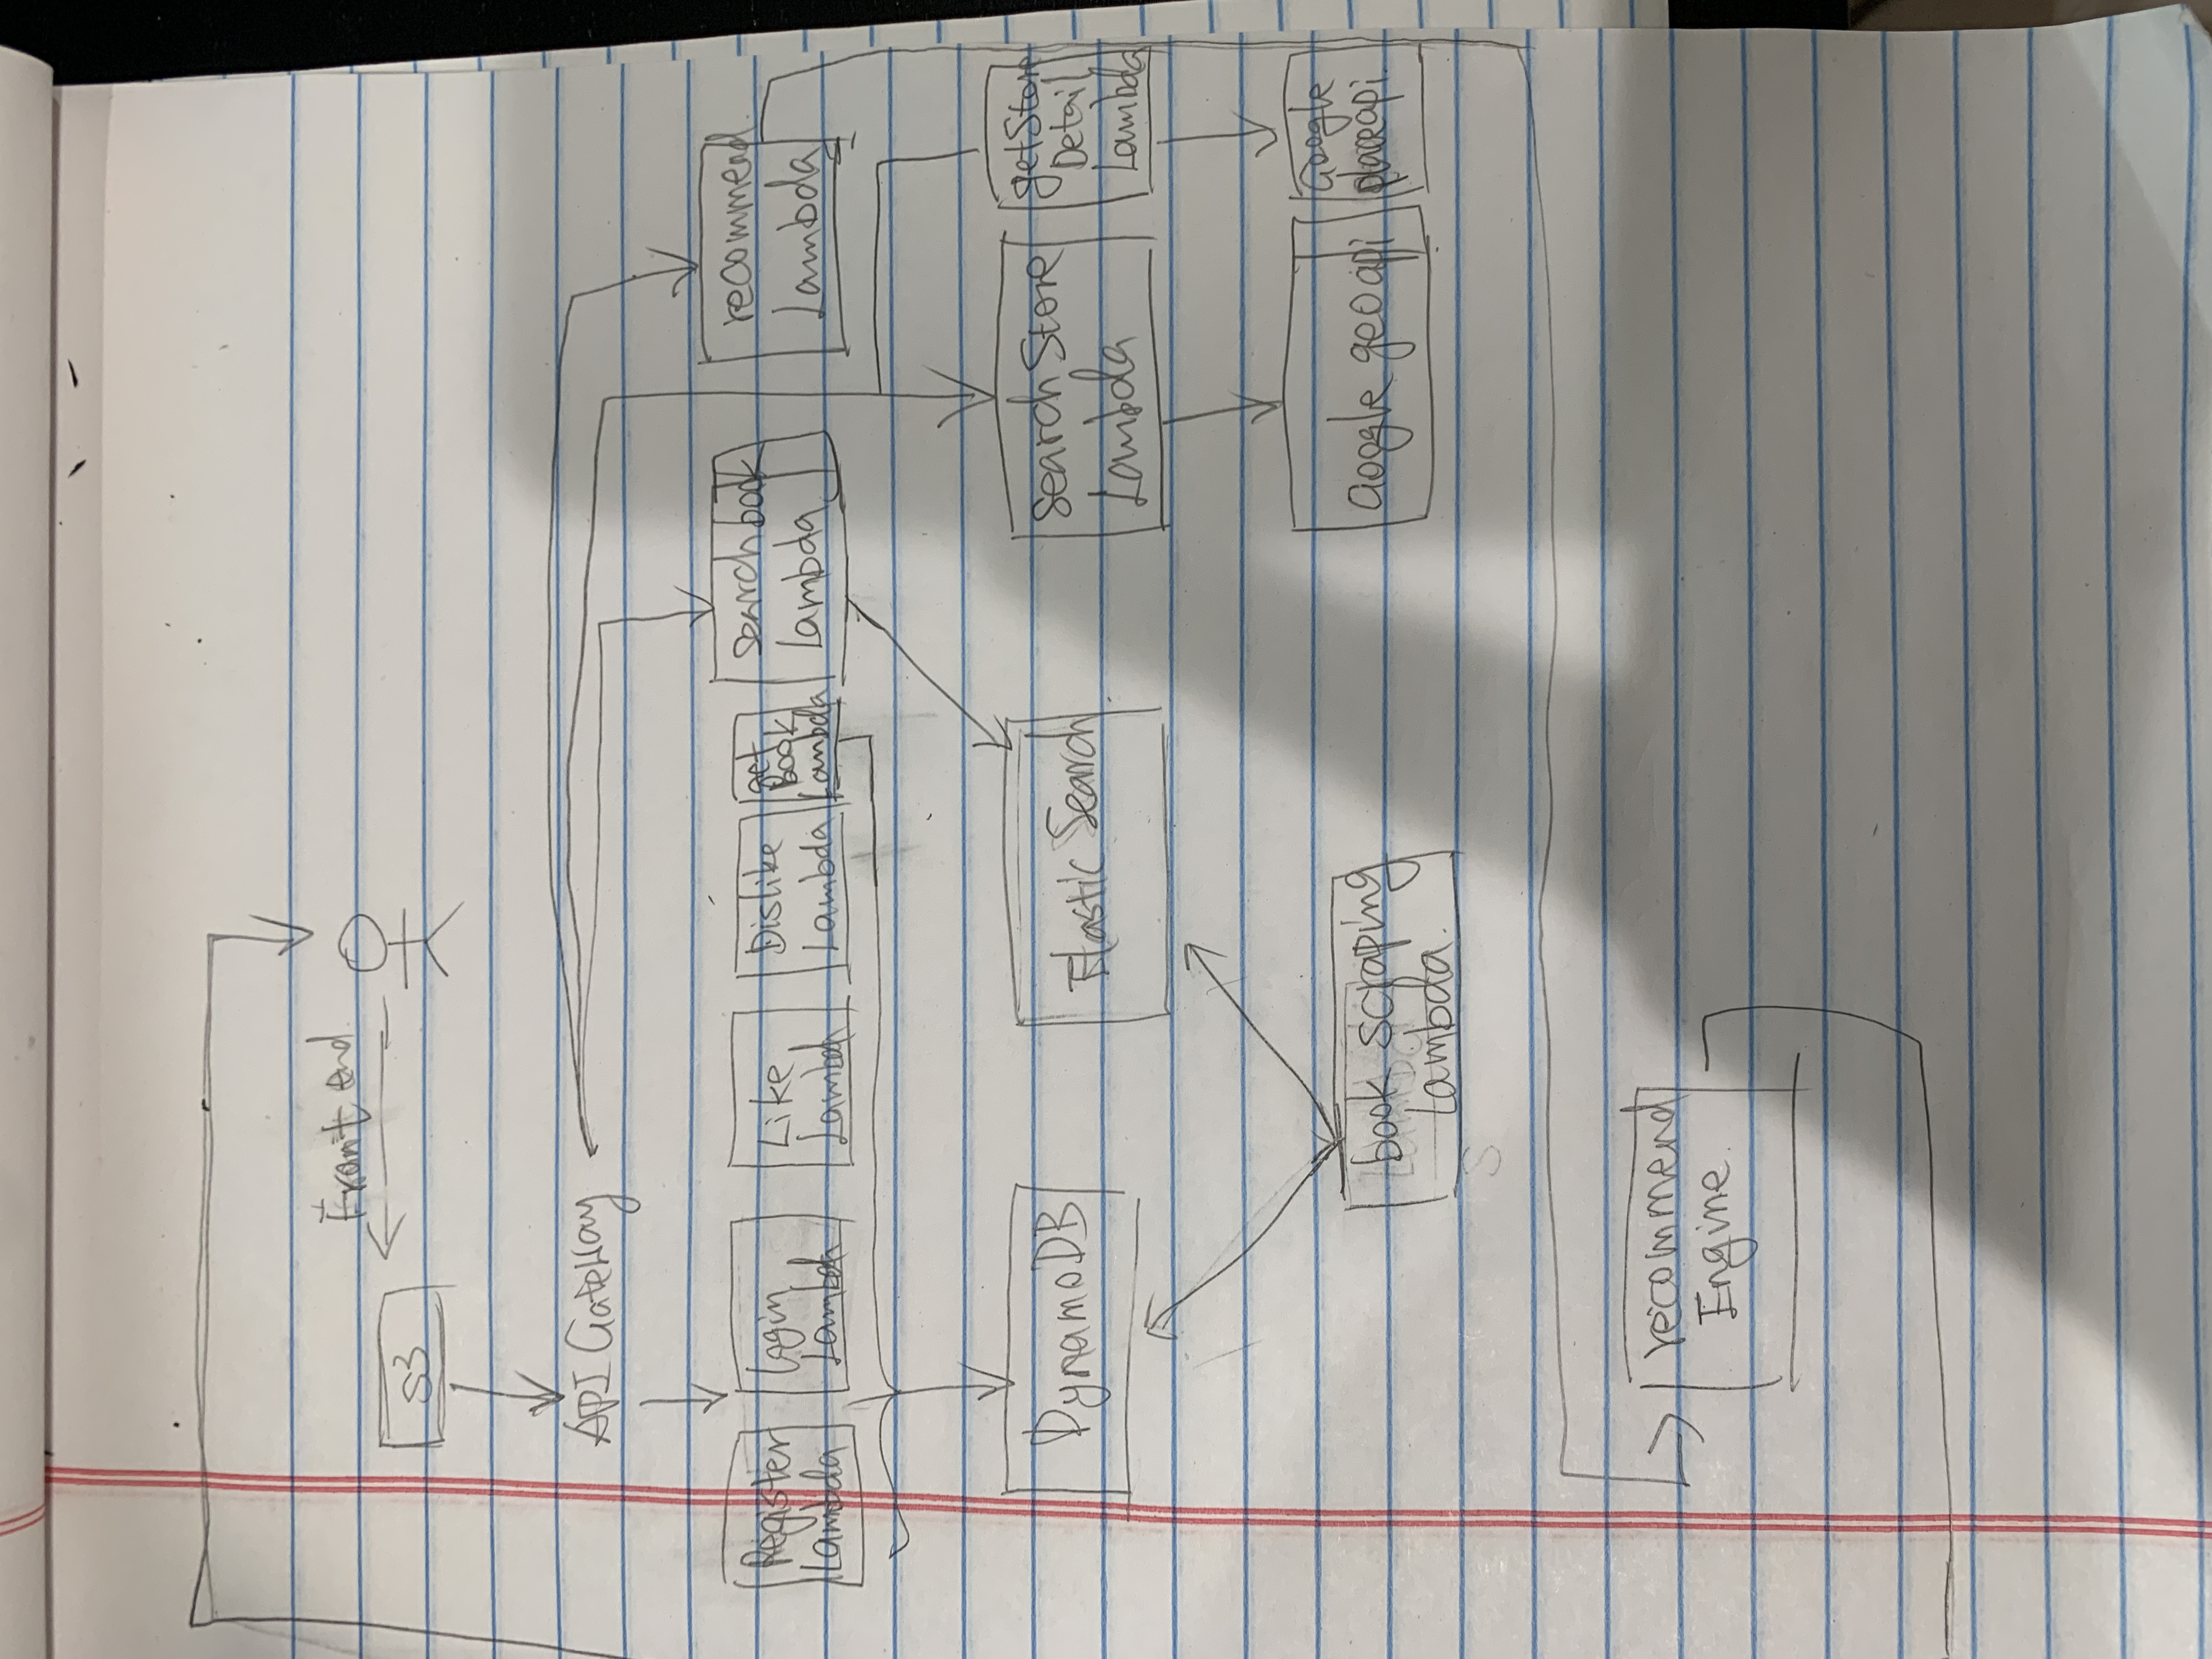 Front end
S3
API Gateway
Register
Lambda
Login
Lambda
Like
Lambda
Dislike
Lambda
get
Book
Lambda
Search book
Lambda
recommend
Lambda
DynamoDB
Elastic Search
Search Store
Lambda
getStore
Detail
Lambda
book scraping
Lambda.
Google geo api
Google
place api
recommend
Engine.